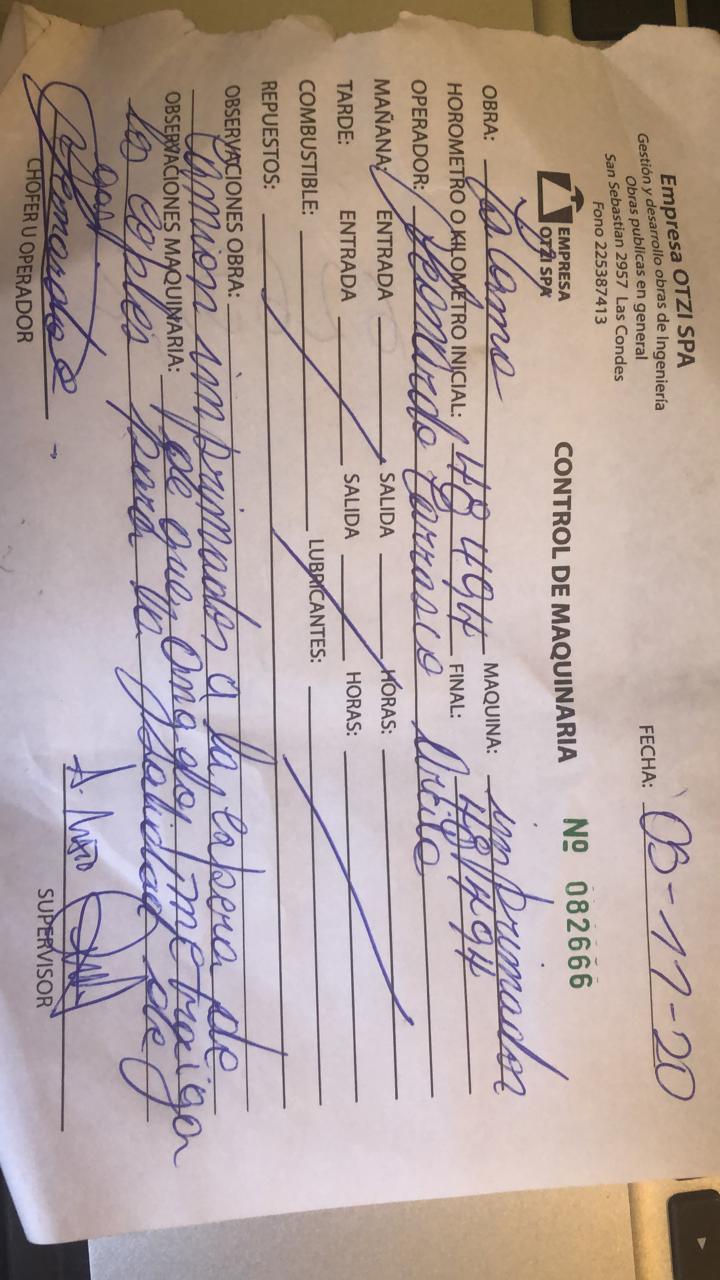 Empresa OTZI SPA
Gestión y desarrollo obras de Ingeniería
Obras publicas en general
San Sebastian 2957 Las Condes
Fono 225387413
FECHA: 03-11-20
EMPRESA
OTZI SPA
CONTROL DE MAQUINARIA Nº 082666
OBRA: MAQUINA: imprimador
HOROMETRO O KILOMETRO INICIAL: 48494 FINAL: 48494
OPERADOR: Leonardo Carrasco
MAÑANA: ENTRADA SALIDA HORAS:
TARDE: ENTRADA SALIDA HORAS:
COMBUSTIBLE: LUBRICANTES:
REPUESTOS:
OBSERVACIONES OBRA:
Camion imprimador a la espera de
OBSERVACIONES MAQUINARIA: de que me traigan
los coples para la salida de
gas
CHOFER U OPERADOR
SUPERVISOR